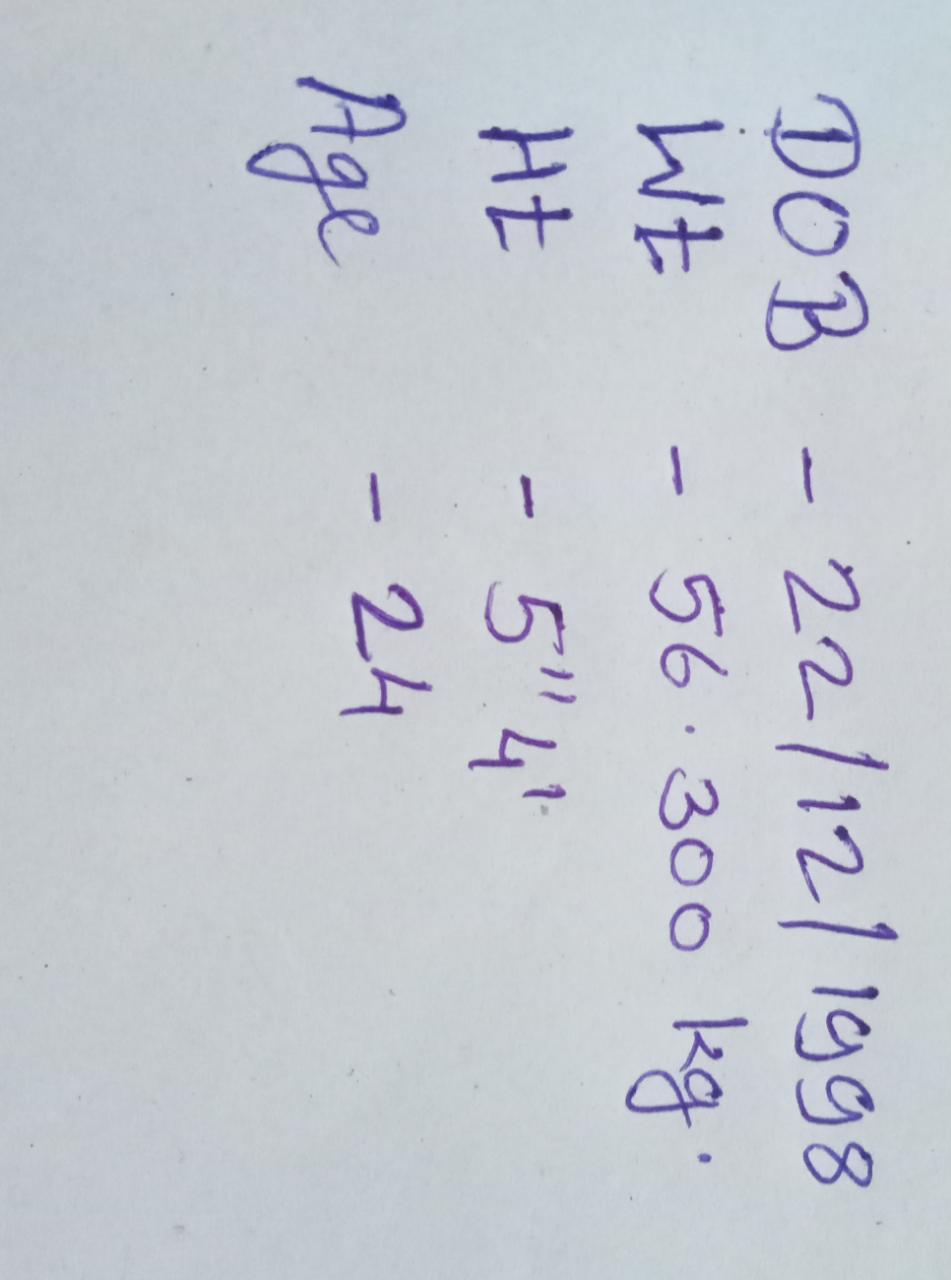 DOB - 22/12/1998
Wt - 56.300 kg.
Ht - 5"4'
Age - 24